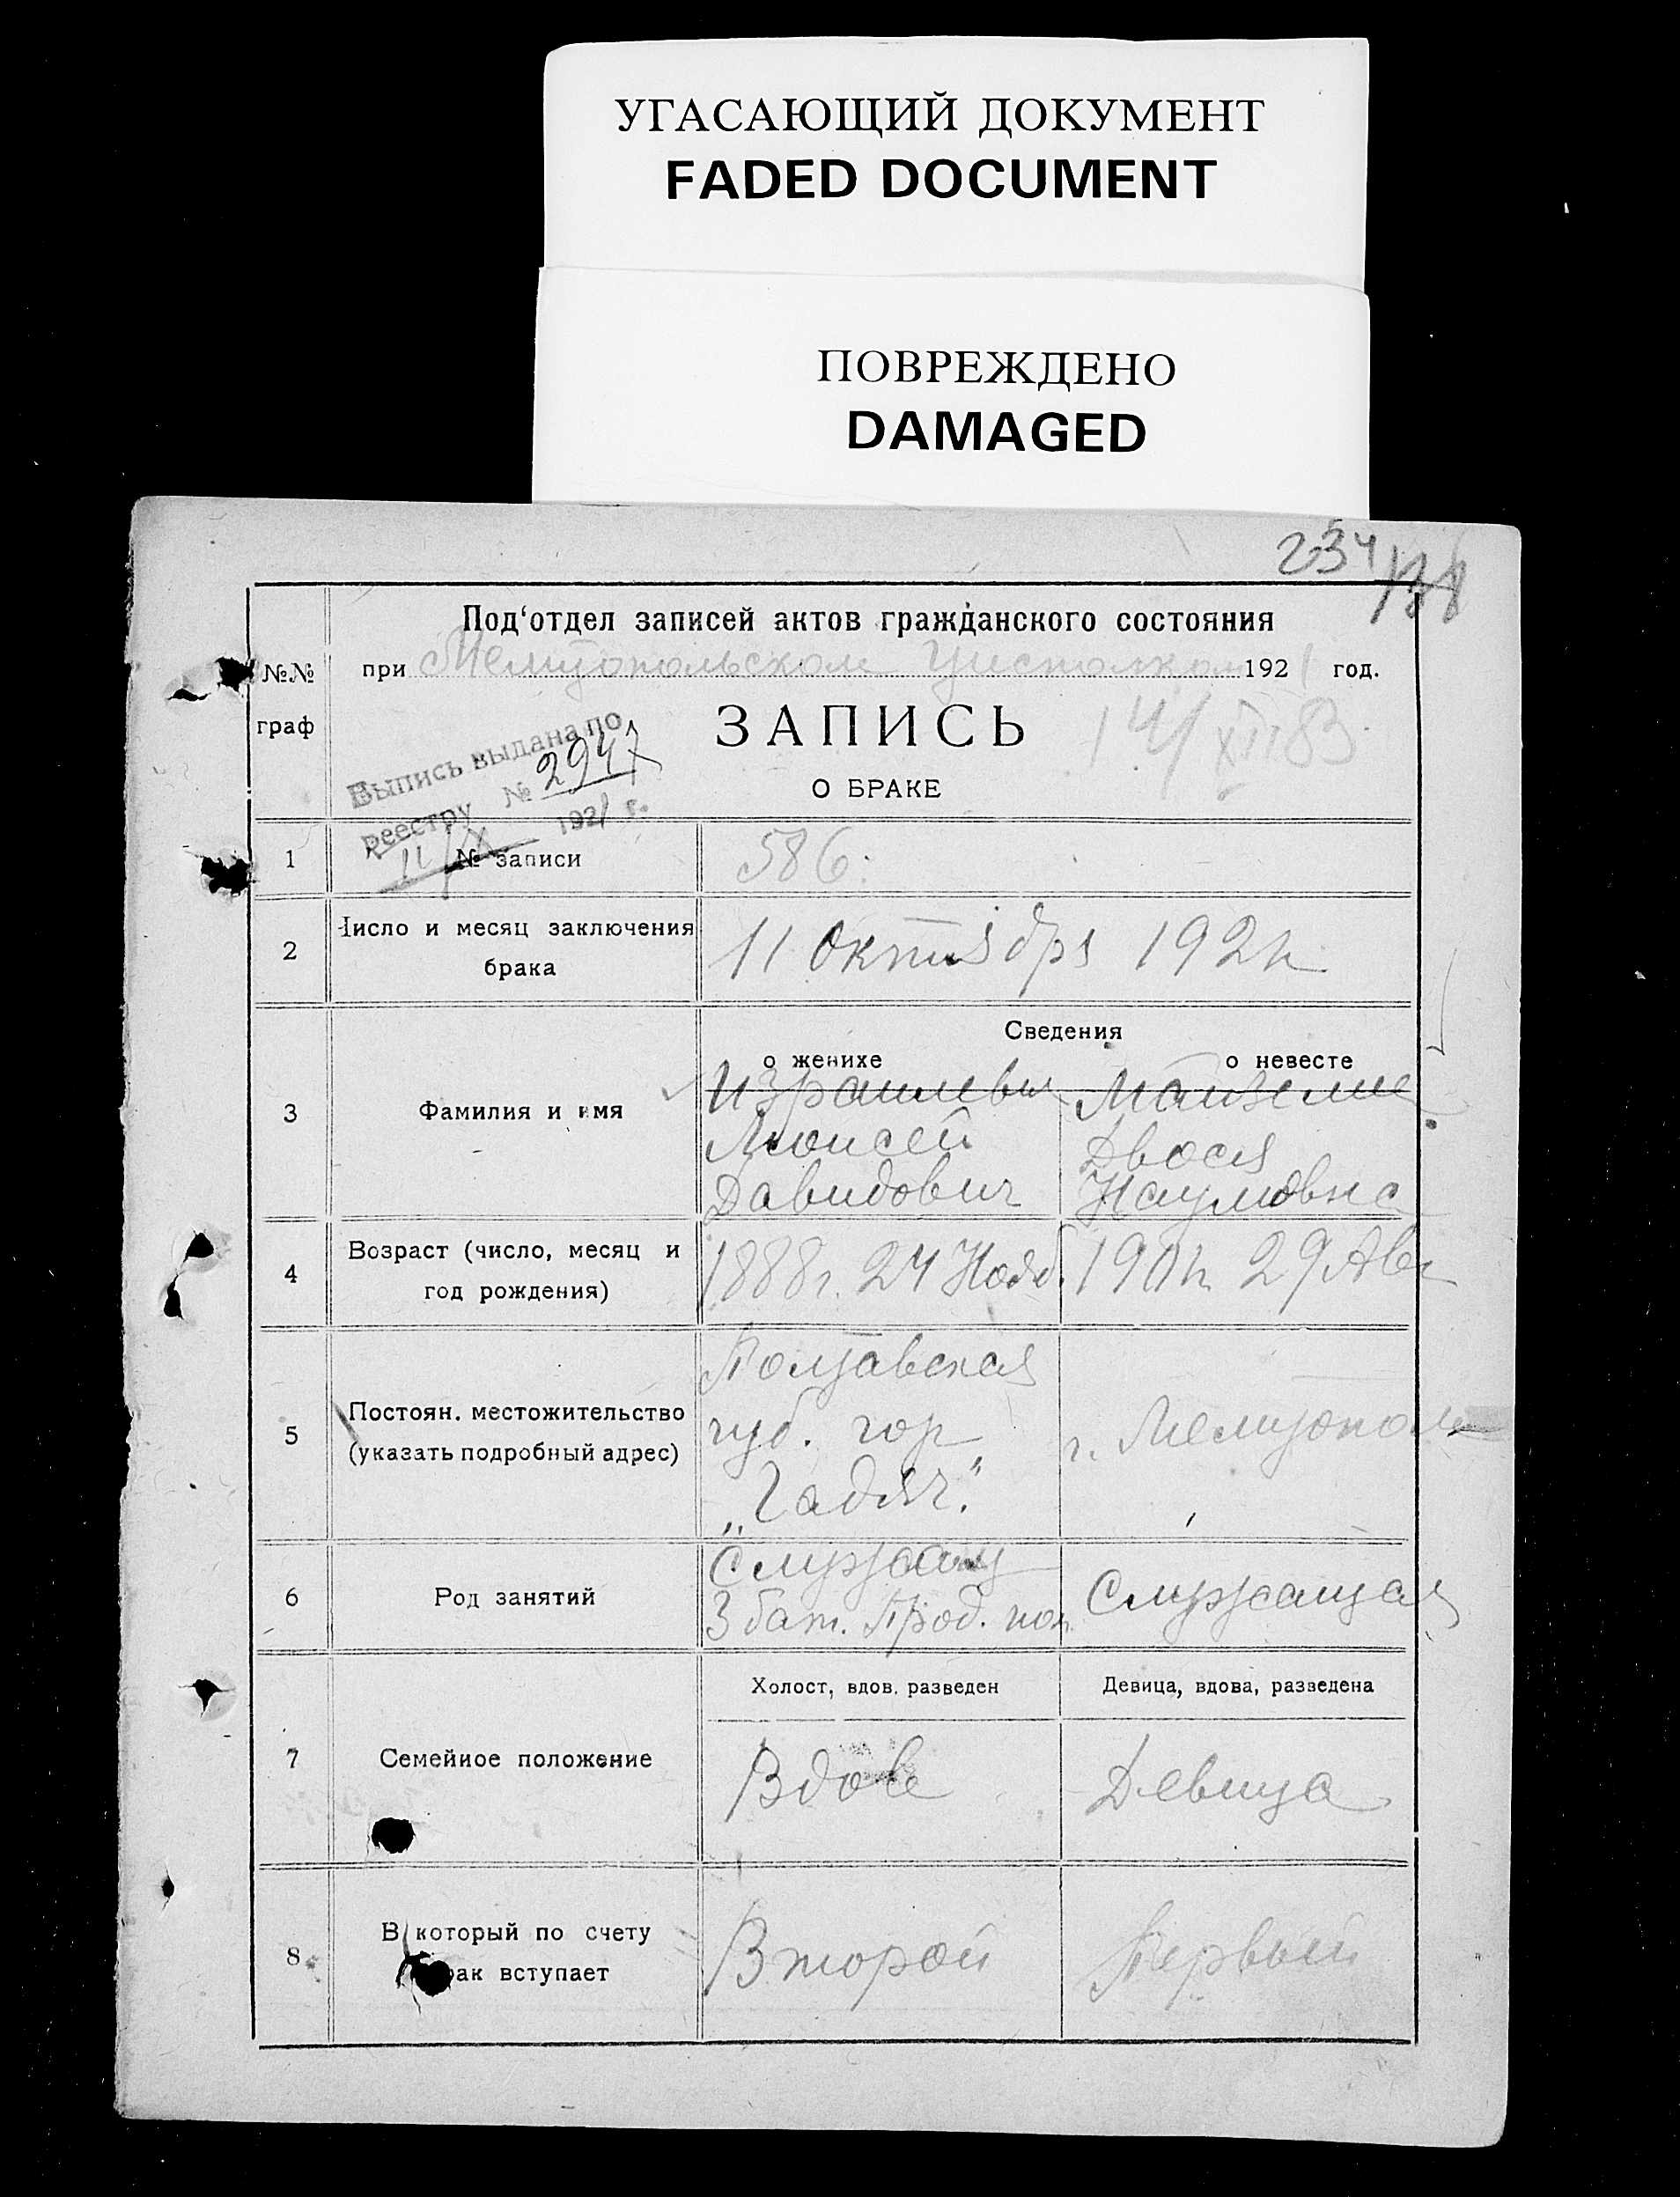 УГАСАЮЩИЙ ДОКУМЕНТ
FADED DOCUMENT
ПОВРЕЖДЕНО
DAMAGED
234
Под‘отдел записей актов гражданского состояния
№№ при Мелитопольском Уисполком 1921 год.
граф
ЗАПИСЬ
О БРАКЕ
Выпись выдана по
реестру № 2947
11/X 1921 г.
1 № записи 586.
2 Число и месяц заключения
брака
11 Октября 1921 г.
Сведения
о женихе о невесте
3 Фамилия и имя
Моисей
Давидович
Двося
Наумовна
4 Возраст (число, месяц и
год рождения)
1888 г. 24 Нояб. 1901 г. 29 Авг
5 Постоян. местожительство
(указать подробный адрес)
Полтавская
губ. гор
„Гадяч.“
г. Мелитополь
6 Род занятий
Служащ
3 бат. Прод. пол.
Служащая
7 Семейное положение
Холост, вдов. разведен Девица, вдова, разведена
Вдов Девица
8 В который по счету
рак вступает
Второй Первый